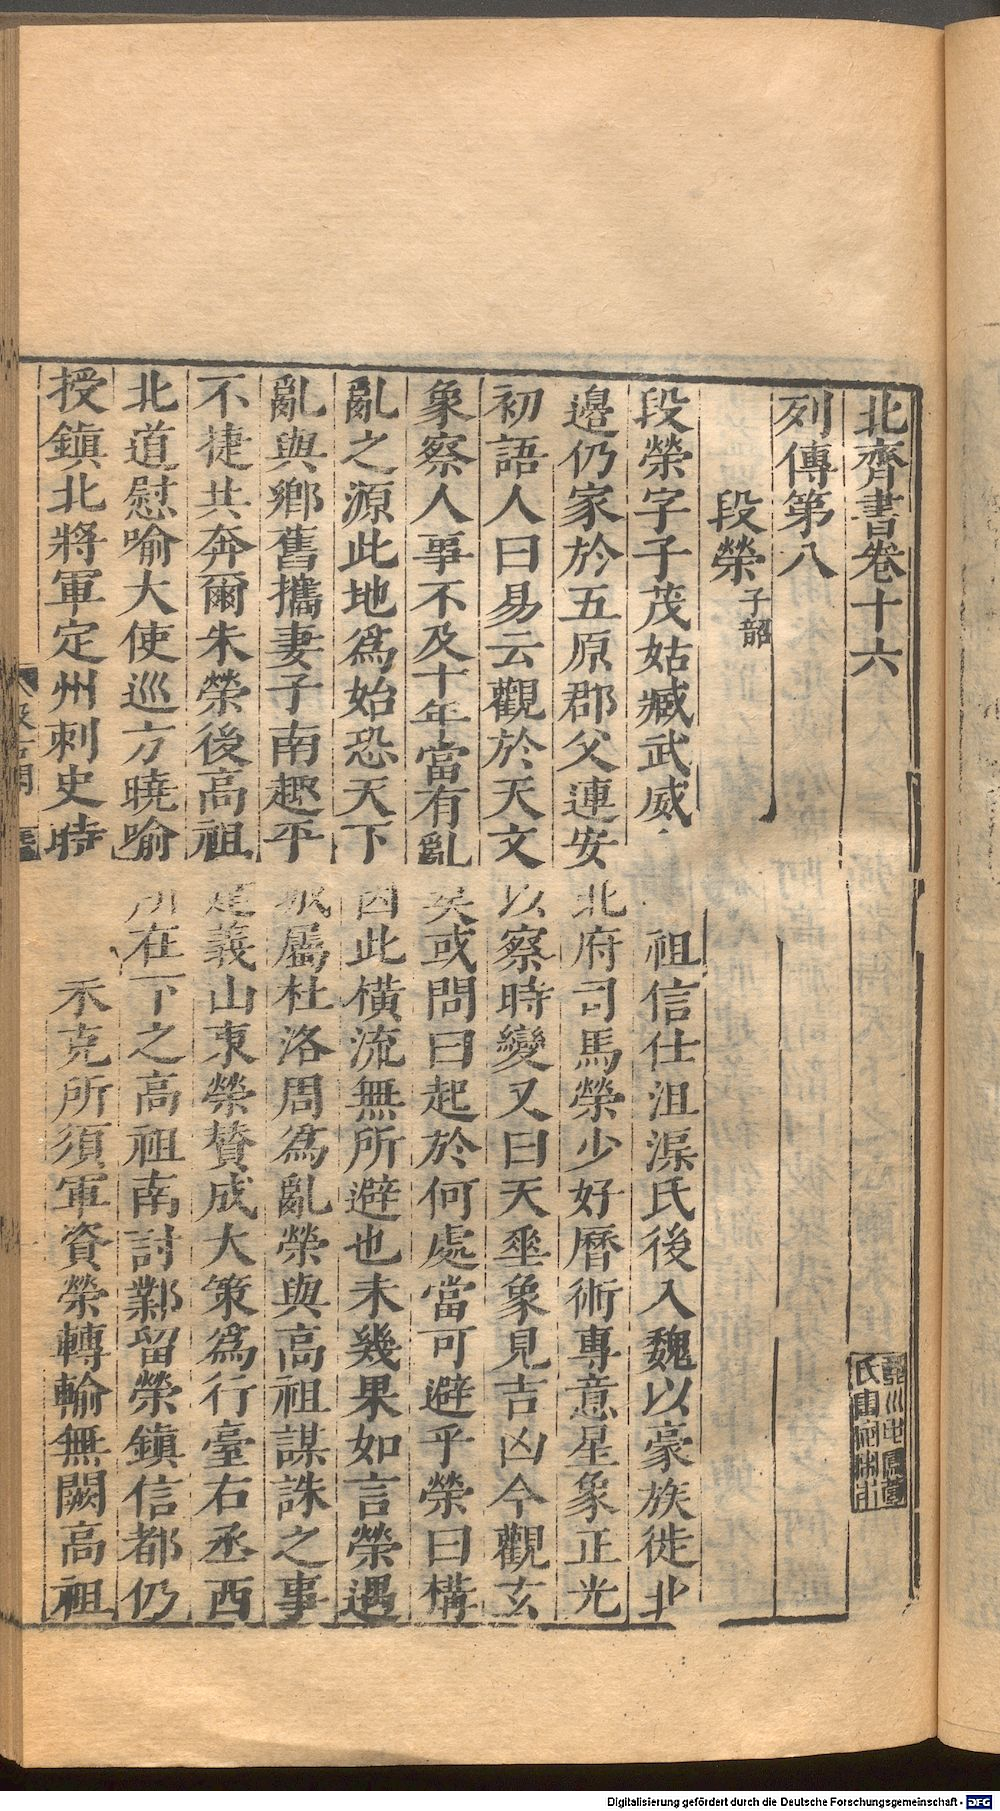 北齊書卷十六
列傳第八
段榮子韶
段榮字子茂姑臧武威 祖信仕沮渠氏後入魏以豪族徙北
邊仍家於五原郡父連安北府司馬榮少好曆術專意星象正光
初語人曰易云觀於天文以察時變又曰天垂象見吉凶今觀玄
象察人事不及十年當有亂矣或問曰起於何處當可避乎榮曰構
亂之源此地為始恐天下因此橫流無所避也未幾果如言榮遇
亂與鄉舊攜妻子南趣平城屬杜洛周為亂榮與高祖謀誅之事
不捷共奔爾朱榮後高祖建義山東榮贊成大策為行臺右丞西
北道慰喻大使巡方曉喻所在下之高祖南討鄴留榮鎮信都仍
授鎮北將軍定州刺史時 未克所須軍資榮轉輸無闕高祖
Digitalisierung gefördert durch die Deutsche Forschungsgemeinschaft - DFG